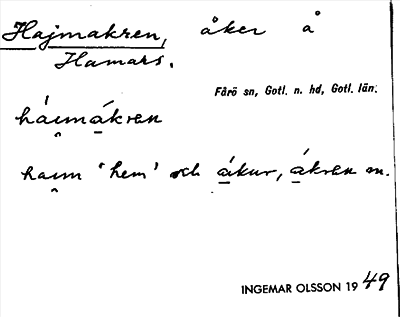 Hajmakren, åker å
Hamars.
Fårö sn, Gotl. n. hd, Gotl. län.
háı̯mákren
haı̯m 'hem' och ákur, ákren m.
INGEMAR OLSSON 1949